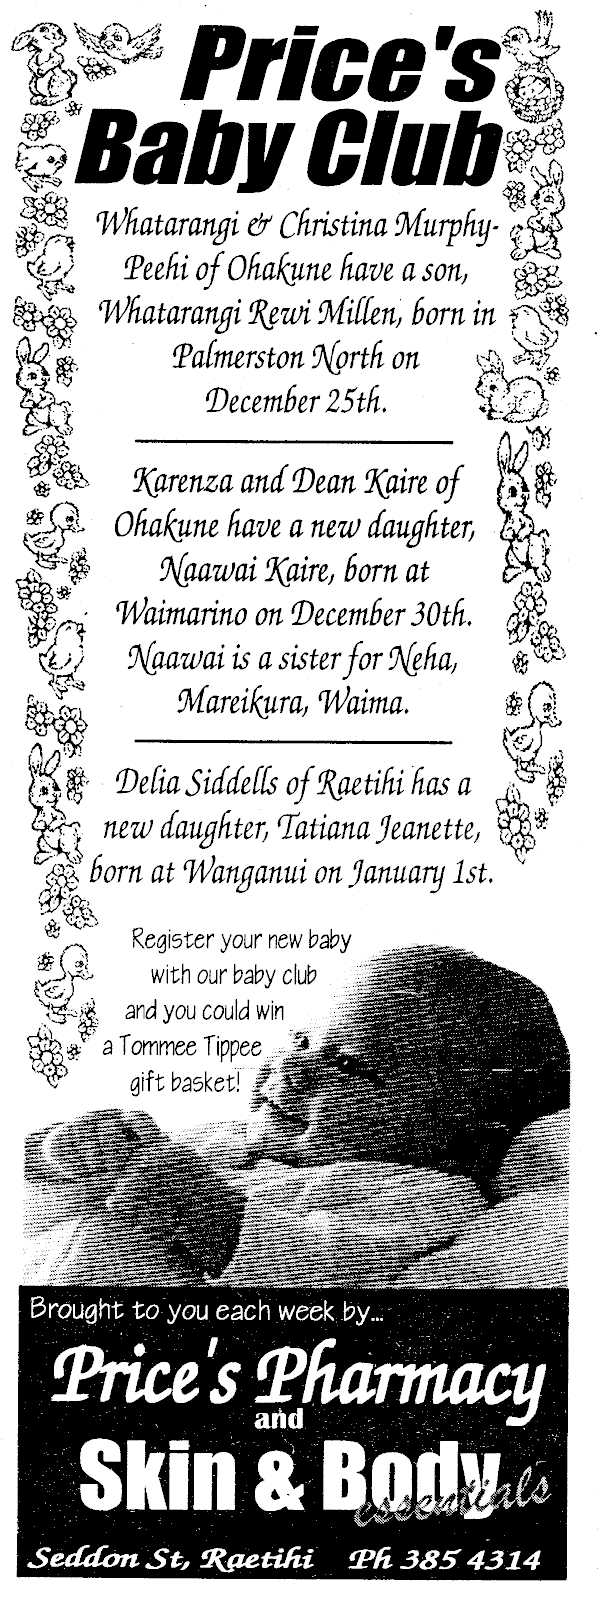 Price's
Baby Club
Whatarangi & Christina Murphy-
Peehi of Ohakune have a son,
Whatarangi Rewi Millen, born in
Palmerston North on
December 25th.
Karenza and Dean Kaire of
Ohakune have a new daughter,
Naawai Kaire, born at
Waimarino on December 30th.
Naawai is a sister for Neha,
Mareikura, Waima.
Delia Siddells of Raetihi has a
new daughter, Tatiana Jeanette,
born at Wanganui on January 1st.
Register your new baby
with our baby club
and you could win
a Tommee Tippee
gift basket!
Brought to you each week by...
Price's Pharmacy
and
Skin & Body
essentials
Seddon St, Raetihi Ph 385 4314